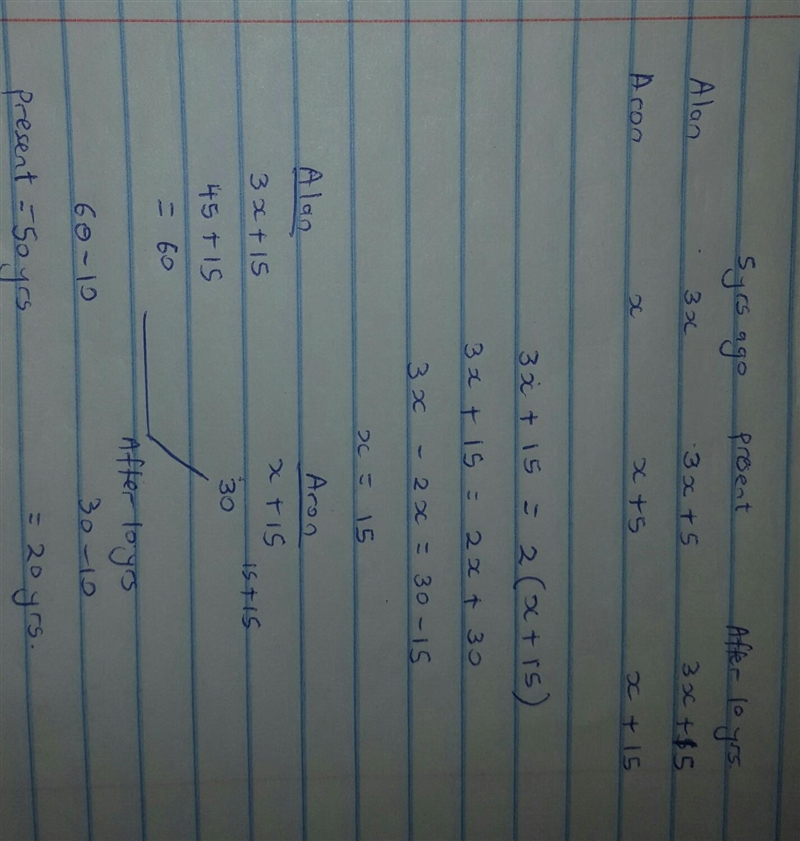 5yrs ago present After 10 yrs.
Alan 3x 3x+5 3x+15
Aron x x+5 x+15
3x + 15 = 2(x+15)
3x + 15 = 2x + 30
3x - 2x = 30-15
x = 15
Alan Aron
3x+15 x+15
45+15 15+15
= 60 30
After 10 yrs
60-10 30-10
present = 50 yrs = 20 yrs.